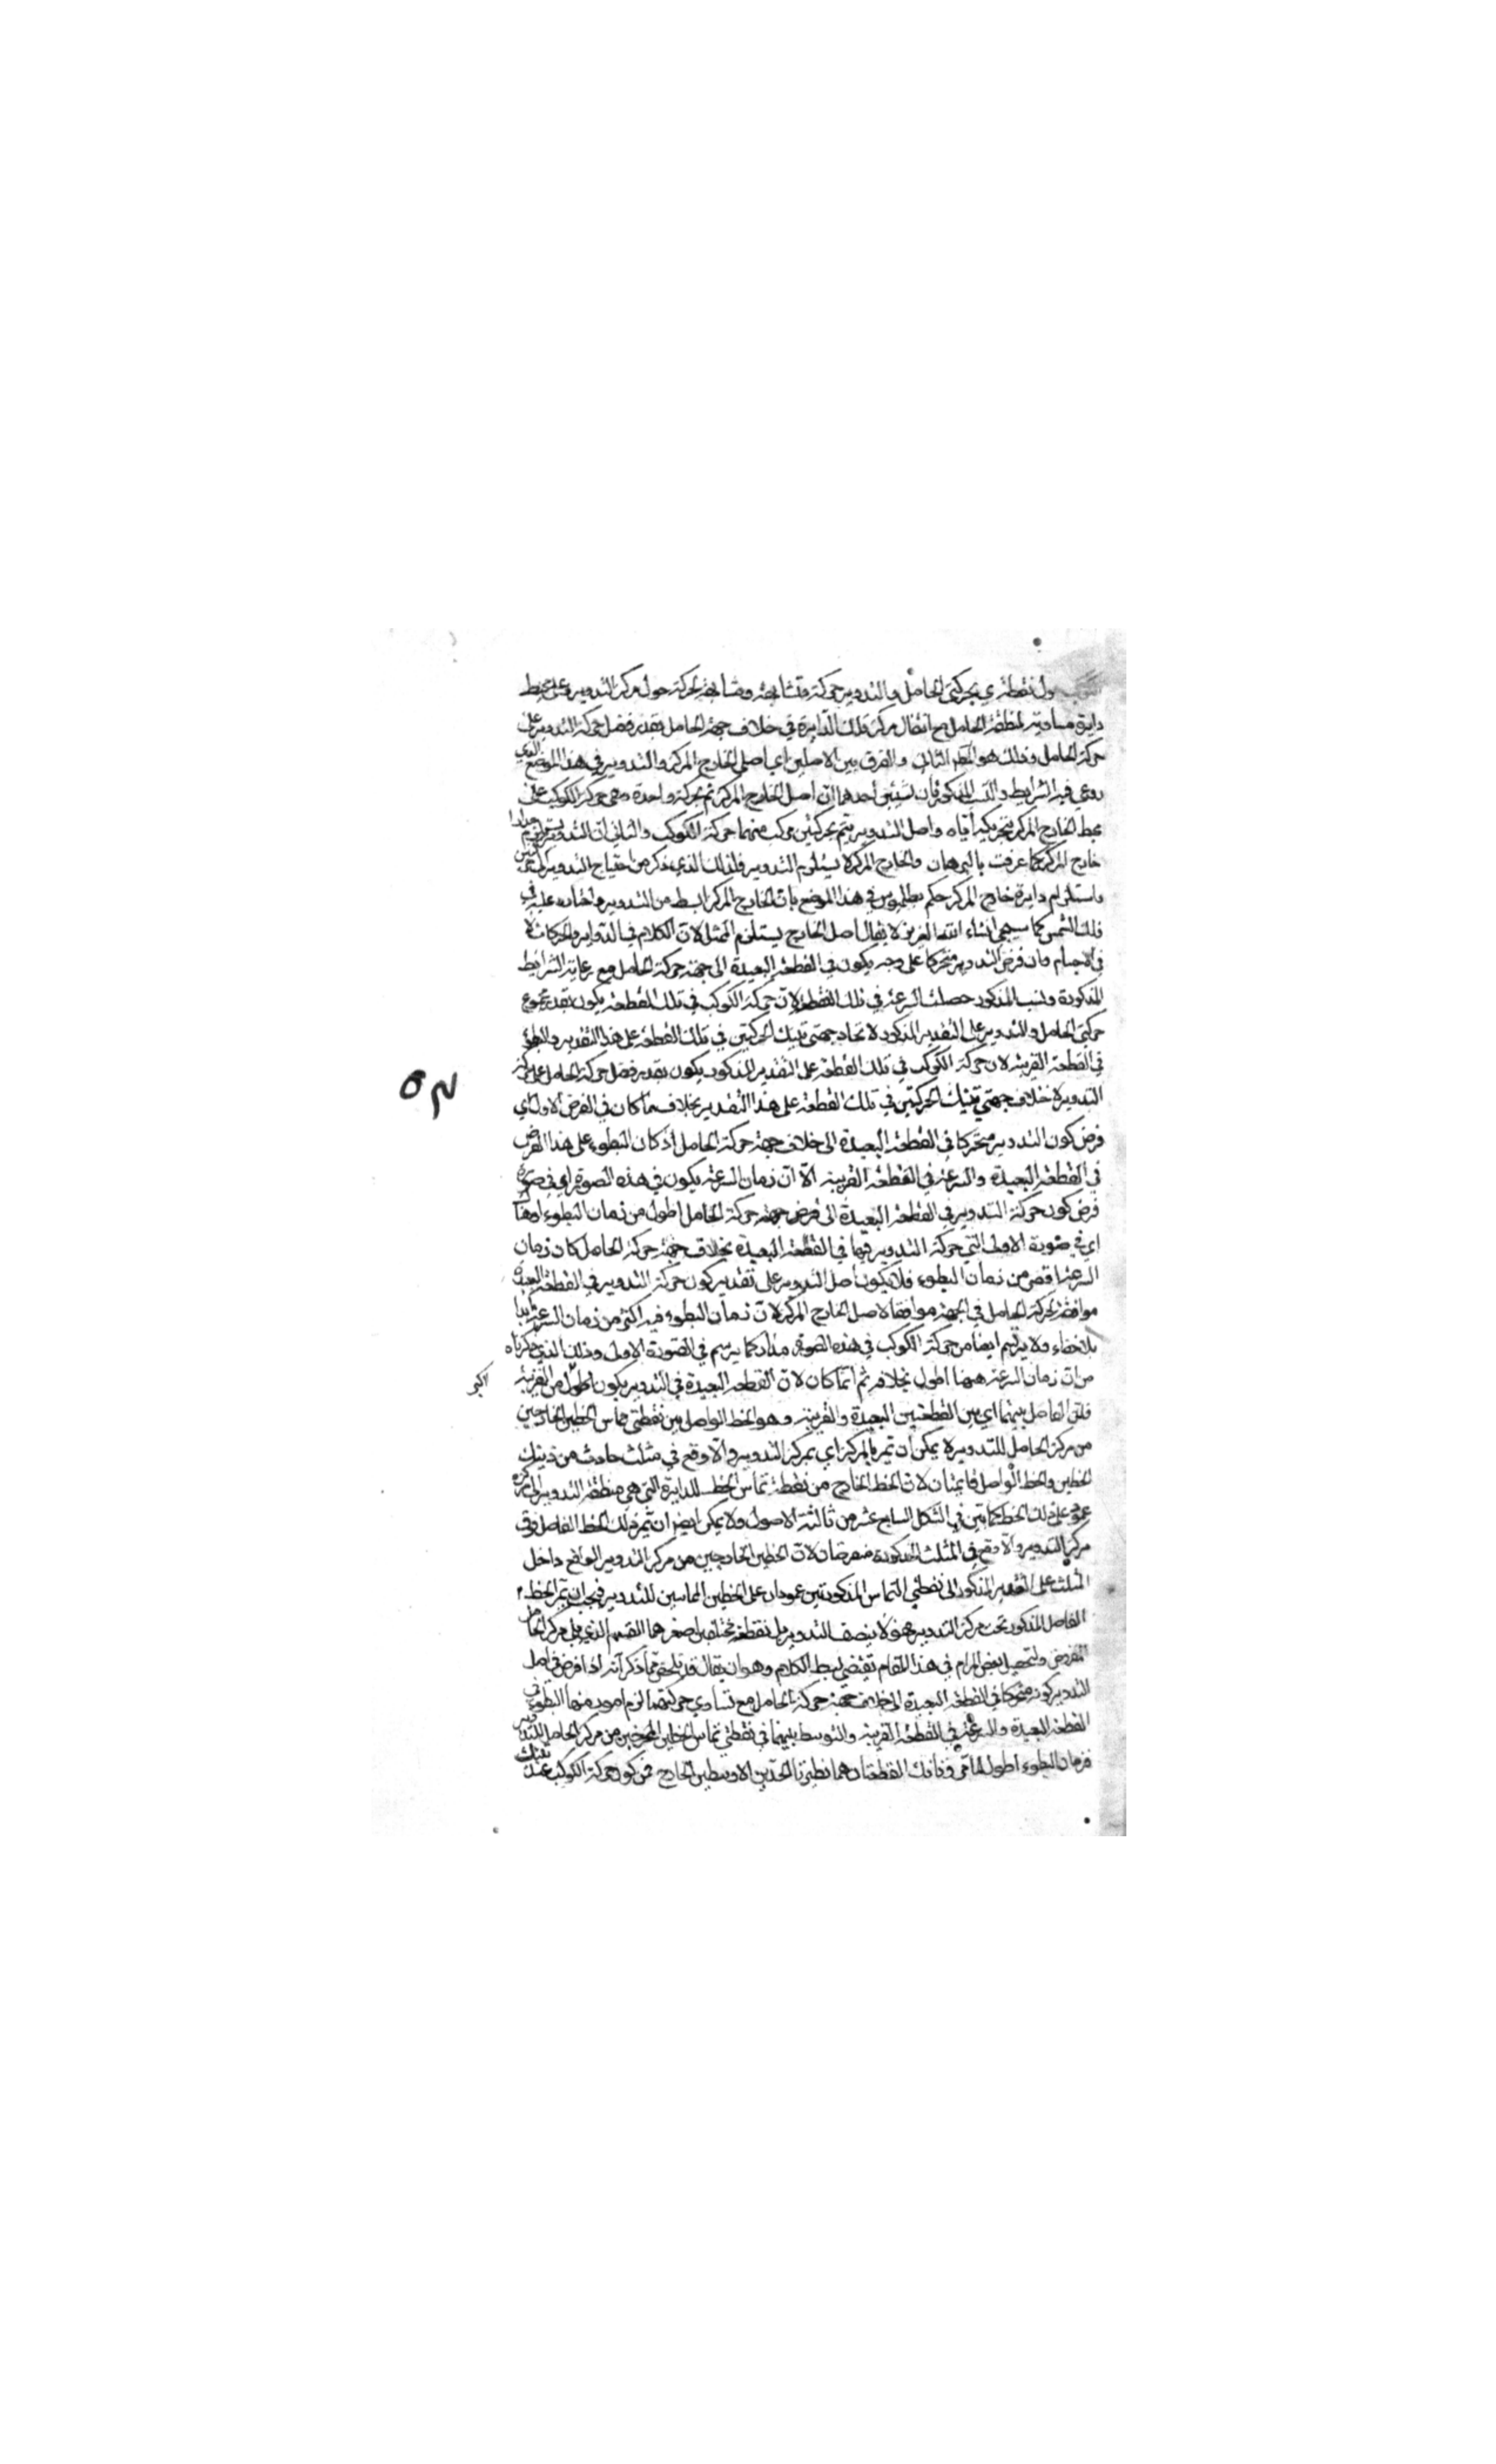 حول نقطة ي بحركتي الحامل والتدوير حركة متشابهة ومشابهة لحركته حول مركز التدوير وعلى محيط
دايرة مساوية لمنطقة الحامل مع انتقال مركز تلك الدايرة في خلاف جهة الحامل بقدر فضل حركة التدوير على
حركة الحامل وذلك هو الحكم الثالث والفرق بين الاصلين اي اصلي الخارج المركز والتدوير في هذا الموضع الذي
روعي فيه الشرايط والنسب المذكورة بشيئين أحدهما ان اصل الخارج المركز يتم بحركة واحدة وهي حركة الكوكب على
محيط الخارج المركز بتحريكه اياه واصل التدوير يتم بحركتين يتركب منهما حركة الكوكب والثاني ان التدوير يستلزم مدارا
خارج المركز كما عرفت بالبرهان والخارج المركز لا يستلزم التدوير فلذلك الذي ذكر من احتياج التدوير الى حركتين
واستلزام دايرة خارج المركز حكم بطلميوس في هذا الموضع بان الخارج المركز ابسط من التدوير واختاره عليه في
فلك الشمس كما سيجئ انشاء الله العزيز لا يقال اصل الخارج يستلزم الممثل لان الكلام في الدواير والحركات لا
في الاجسام فان فرض التدوير متحركا على وجه يكون في القطعة البعيدة الى جهة حركة الحامل مع رعاية الشرايط
المذكورة ونسب المذكور حصلت السرعة في تلك القطعة لان حركة الكوكب في تلك القطعة يكون بقدر مجموع
حركتي الحامل والتدوير على التقدير المذكور لاتحاد جهتي تينك الحركتين في تلك القطعة على هذا التقدير والبطؤ
في القطعة القريبة لان حركة الكوكب في تلك القطعة على التقدير المذكور يكون بقدر فضل حركة الحامل على حركة
التدوير لاختلاف جهتي تينك الحركتين في تلك القطعة على هذا التقدير بخلاف ما كان في الفرض الاول اي
فرض كون التدوير متحركا في القطعة البعيدة الى خلاف جهة حركة الحامل اذ كان البطوء على هذا الفرض
في القطعة البعيدة والسرعة في القطعة القريبة الا ان زمان السرعة يكون في هذه الصورة اي في صورة
فرض كون حركة التدوير في القطعة البعيدة الى جهة حركة الحامل اطول من زمان البطوء
اي في صورة الاولى التي حركة التدوير فيها في القطعة البعيدة بخلاف جهة حركة الحامل كان زمان
السرعة اقصر من زمان البطوء فلا يكون اصل التدوير على تقدير كون حركة التدوير في القطعة البعيدة
موافقة لحركة الحامل في الجهة موافقا لاصل الخارج المركز لان زمان البطوء فيه اكثر من زمان السرعة ابدا
بلا خفاء ولا يرتسم ايضا من حركة الكوكب في هذه الصورة مدار كما يرتسم في الصورة الاولى وذلك الذي ذكرناه
من ان زمان السرعة ههنا اطول بخلافه ثم انما كان لان القطعة البعيدة في التدوير يكون اطول من القريبة
اكبر
فلان الفاصل بينهما اي بين القطعتين البعيدة والقريبة وهو الخط الواصل بين نقطتي تماس الخطين الخارجين
من مركز الحامل للتدوير لا يمكن ان تمر بالمركز اي بمركز التدوير والا وقع في مثلث حادث من ذينك
الخطين والخط الواصل قائمتان لان الخط الخارج من نقطة تماس الخط للدايرة التي هي منطقة التدوير الى مركزه
عمود على ذلك الخط كما تبين في الشكل السابع عشر من ثالثة الاصول ولا يمكن ايضا ان تمر ذلك الخط الفاصل فوق
مركز التدوير والا وقع في المثلث المذكورة منفرجتان لان الخطين الخارجين من مركز التدوير الواقع داخل
المثلث على التقدير المذكور الى نقطتي التماس المذكورتين عمودان على الخطين المماسين للتدوير فيجب ان تمر الخط
الفاصل المذكور تحت مركز التدوير فهو لا ينصف التدوير بل يقطعه بمختلفين اصغرهما القسم الذي يلي مركز الحامل
المفروض ولتحصيل بعض المرام في هذا المقام تقتضي لبسط الكلام وهو ان يقال قد تلخص مما ذكر انه اذا فرض في اصل
التدوير كونه متحركا في القطعة البعيدة الى خلاف جهة حركة الحامل مع تساوي حركتيهما لزم امور منها البطوء في
القطعة البعيدة والسرعة في القطعة القريبة والتوسط بينهما في نقطتي تماس الخطين المخرجين من مركز الحامل للتدوير
فزمان البطوء اطول لما مر وتانك القطعتان هما نظيرتا البعدين الاوسطين الخارج فمن كون حركة الكوكب عند تينك